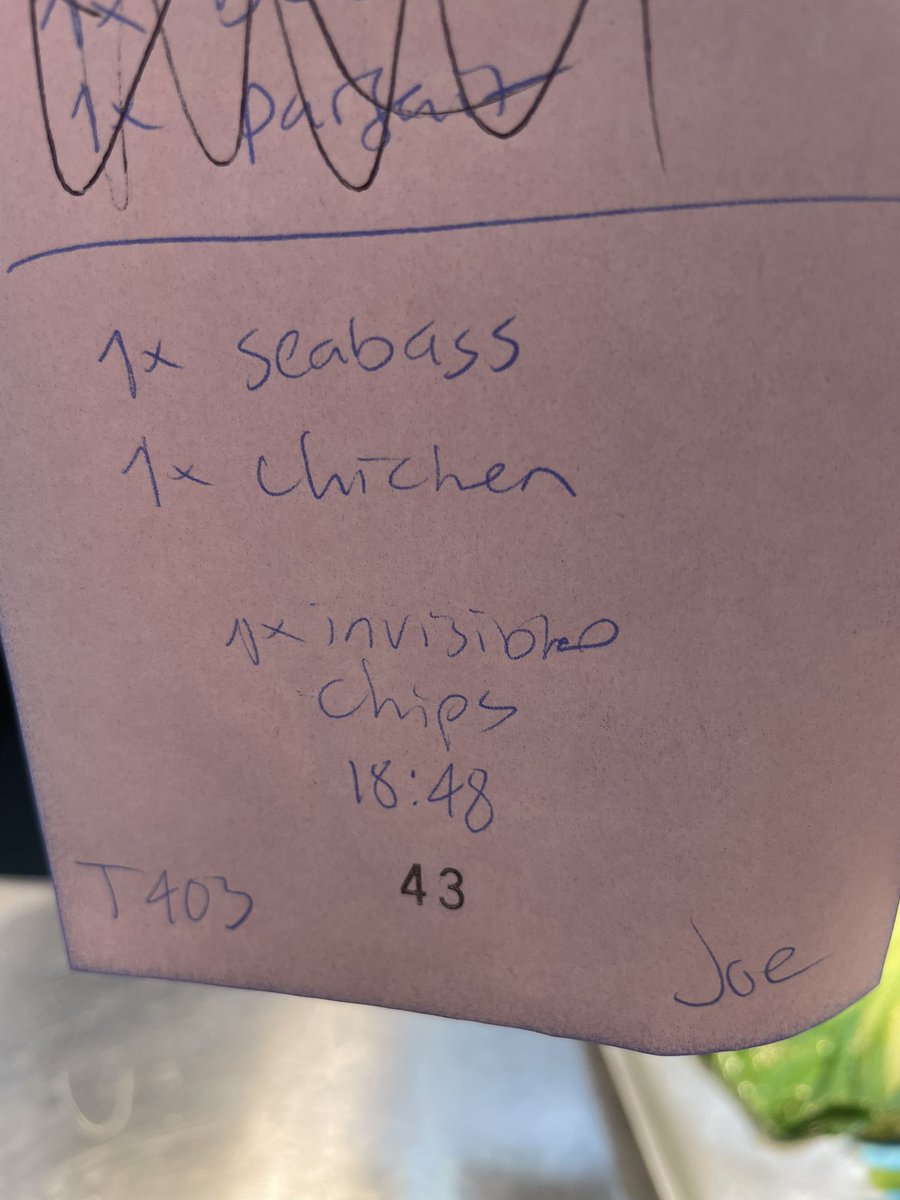 1x
1x parfait
1x seabass
1x chichen
1x invisible
chips
18:48
T403 43 Joe